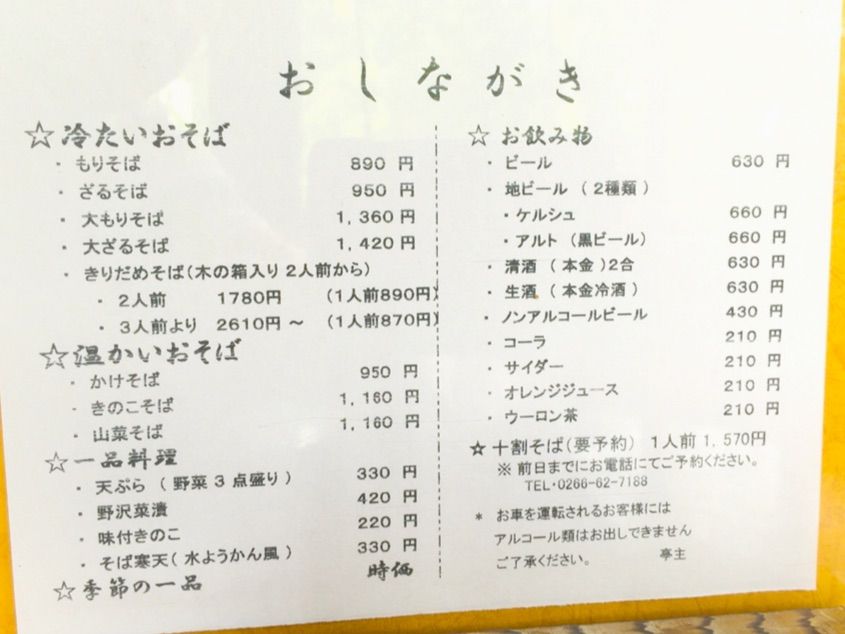 おしながき
☆冷たいおそば
・もりそば 890円
・ざるそば 950円
・大もりそば 1,360円
・大ざるそば 1,420円
・きりだめそば(木の箱入り2人前から)
・2人前 1780円 (1人前890円)
・3人前より 2610円～ (1人前870円)
☆温かいおそば
・かけそば 950円
・きのこそば 1,160円
・山菜そば 1,160円
☆一品料理
・天ぷら (野菜3点盛り) 330円
・野沢菜漬 420円
・味付きのこ 220円
・そば寒天(水ようかん風) 330円
☆季節の一品 時価
☆ お飲み物
・ビール 630円
・地ビール (2種類)
・ケルシュ 660円
・アルト (黒ビール) 660円
・清酒 (本金)2合 630円
・生酒 (本金冷酒) 630円
・ノンアルコールビール 430円
・コーラ 210円
・サイダー 210円
・オレンジジュース 210円
・ウーロン茶 210円
☆十割そば(要予約) 1人前 1,570円
※ 前日までにお電話にてご予約ください。
TEL・0266-62-7188
* お車を運転されるお客様には
アルコール類はお出しできません
ご了承ください。 亭主